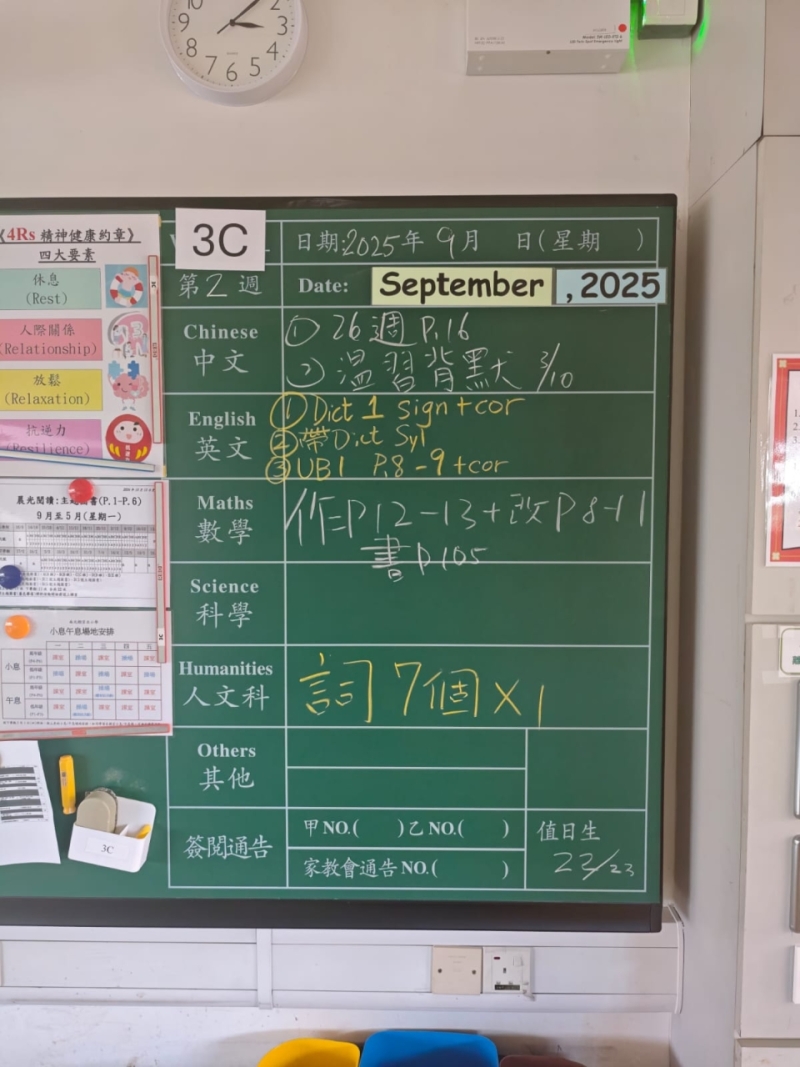 10
2
9
3
8
4
7
6
5
《4Rs 精神健康約章》
四大要素
休息
(Rest)
人際關係
(Relationship)
放鬆
(Relaxation)
抗逆力
(Resilience)
晨光閱讀:主題圖書(P.1-P.6)
9月至5月(星期一)
小息午息場地安排
一 二 三 四 五
小息
午息
3C
3C
日期:2025年 9月 日(星期 )
第2週
Date: September , 2025
Chinese
中文
① 26週 P.16
② 溫習背默 3/10
English
英文
① Dict 1 sign + cor
② 帶 Dict Syl
③ UB1 P.8-9 + cor
Maths
數學
作=P12-13+改P8-11
書P105
Science
科學
Humanities
人文科
詞7個X1
Others
其他
簽閱通告
甲NO.( )乙NO.( )
家教會通告NO.( )
值日生
22/23